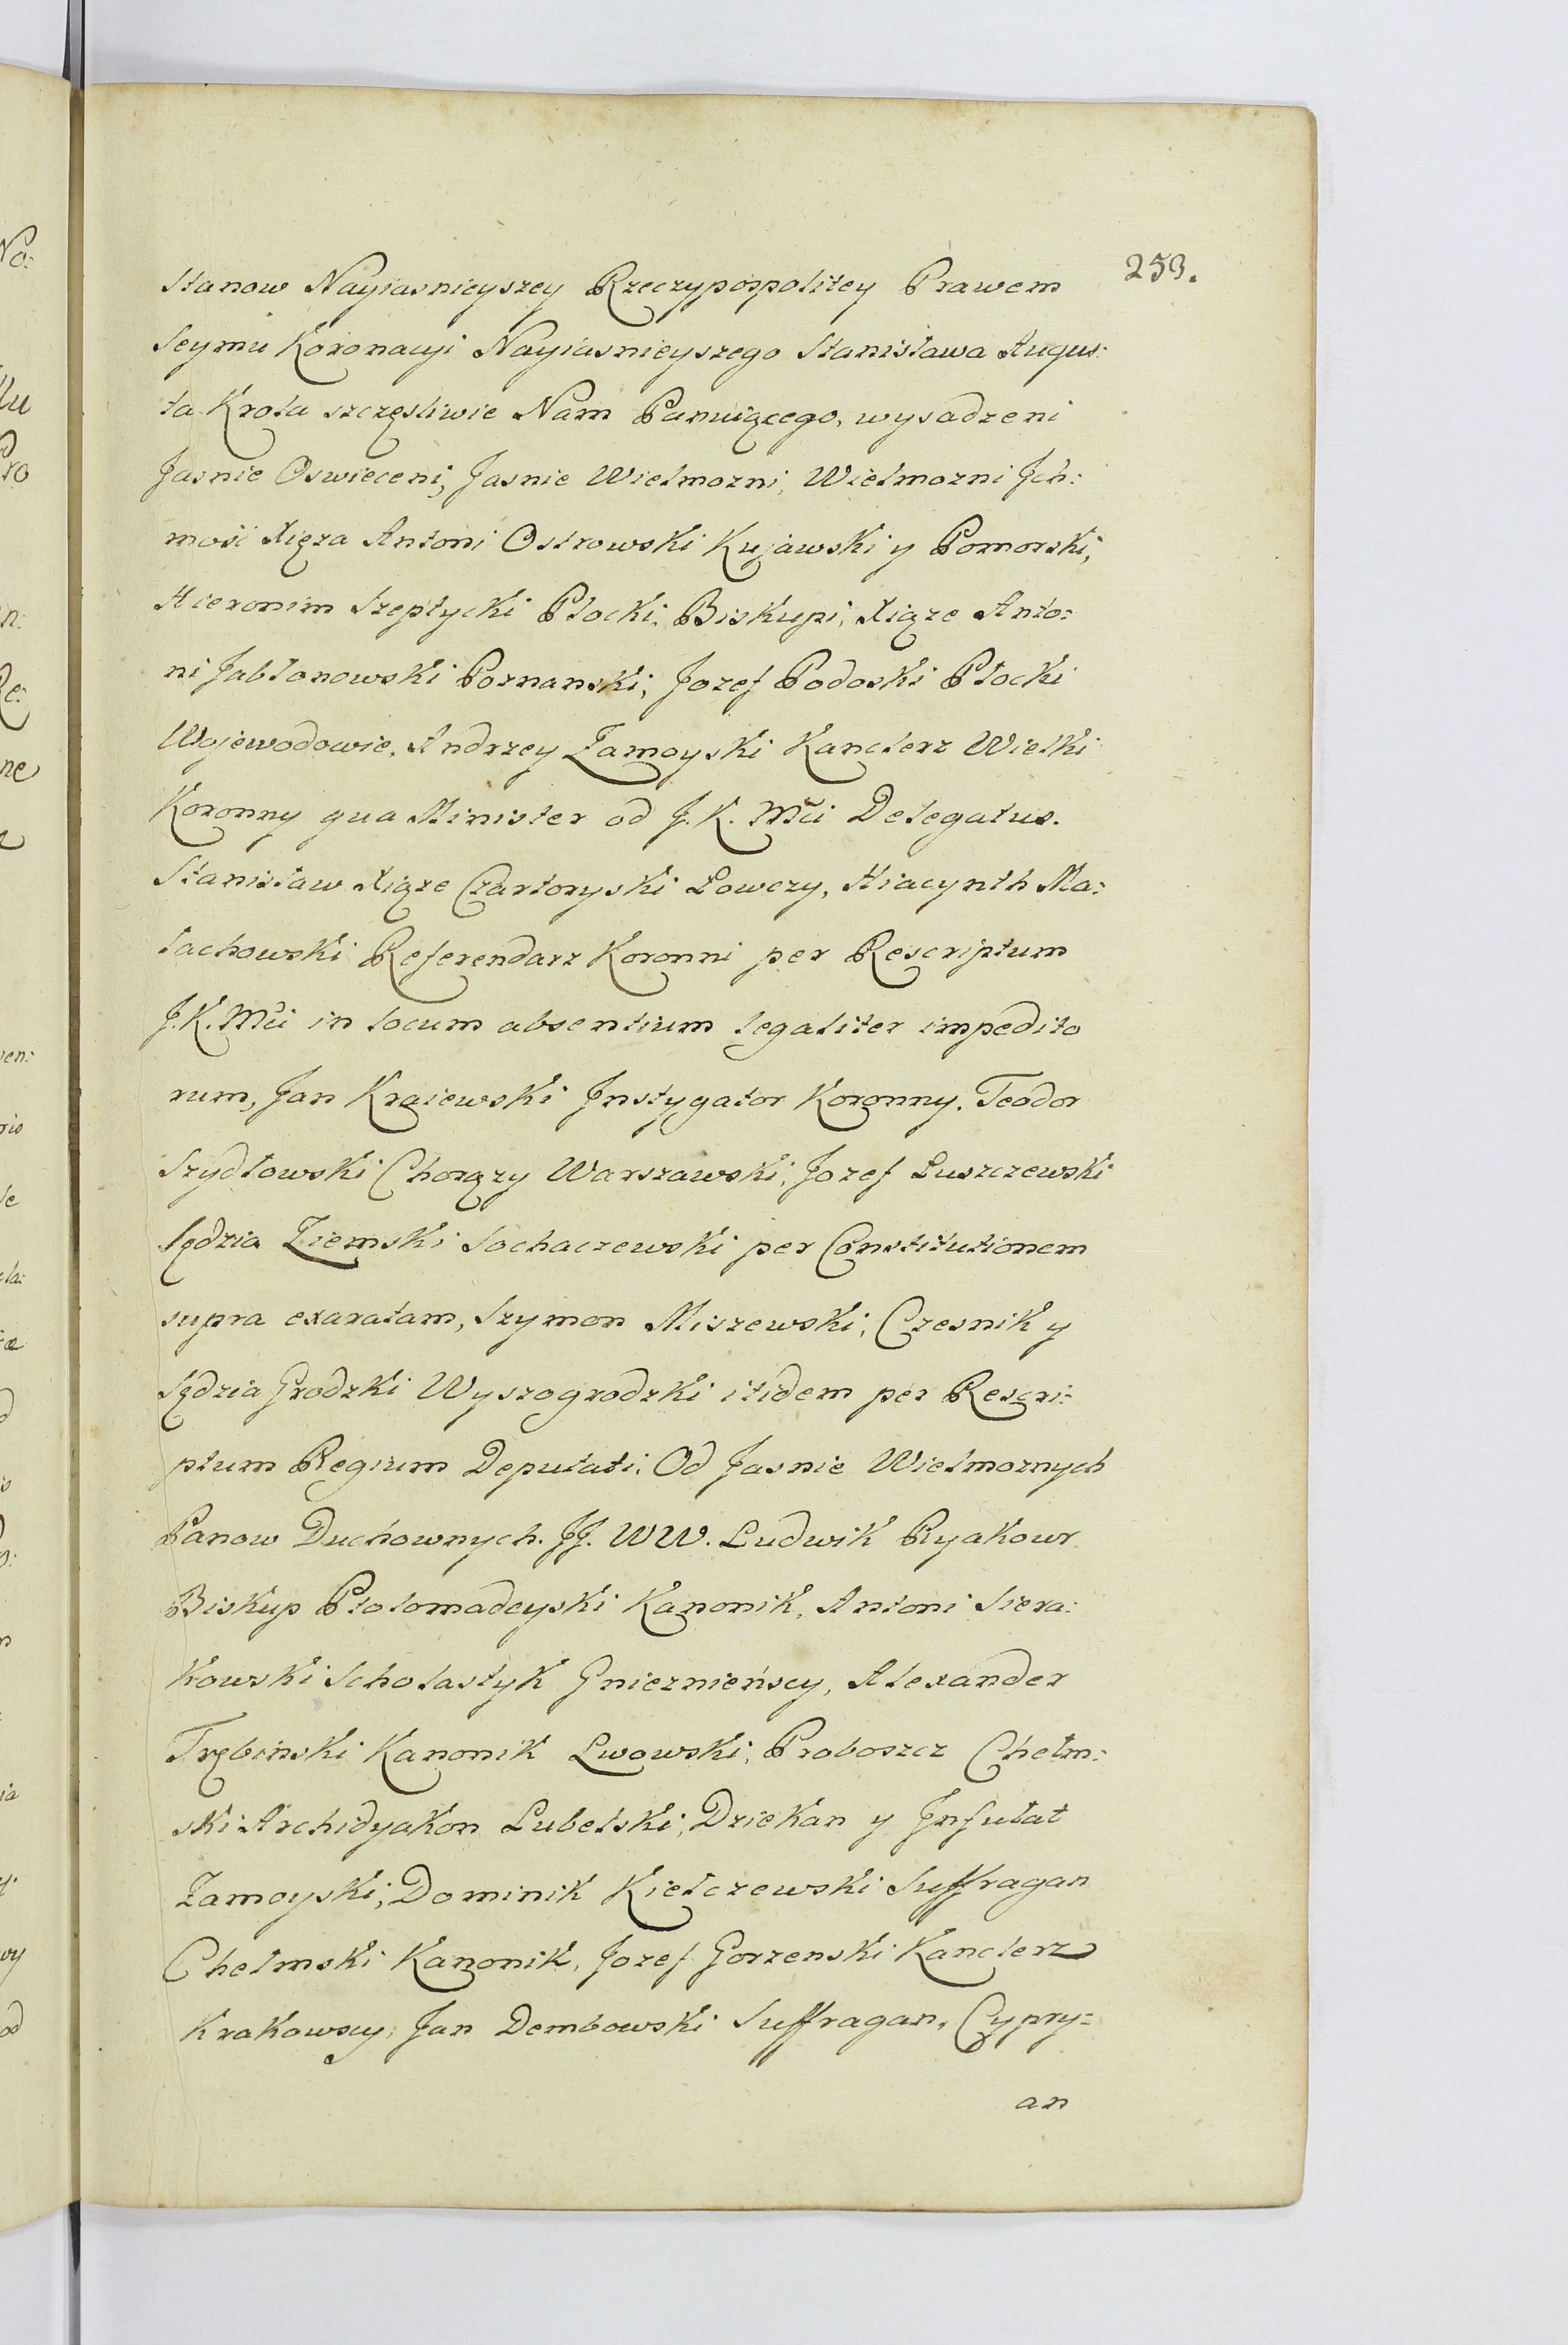 253.
Stanow Nayiasnieyszey Rzeczypospolitey Prawem
Seymu Koronacyi Nayiasnieyszego Stanisława Augus:
ta Krola szczęsliwie Nam Panuiącego, wysadzeni
Jasnie Oswieceni, Jasnie Wielmozni, Wielmozni Jch:
mość Xięza Antoni Ostrowski Kujawski y Pomorski,
Hieronim Szeptycki Płocki, Biskupi, Xiąze Anto:
ni Jabłonowski Poznanski, Jozef Podoski Płocki
Wojewodowie, Andrzey Zamoyski Kanclerz Wielki
Koronny qua Minister od J. K. Mci Delegatus.
Stanisław Xiąze Czartoryski Łowczy, Hiacynth Ma:
łachowski Referendarz Koronni per Rescriptum
J. K. Mci in locum absentium legaliter impedito
rum, Jan Kraiewski Jnstygator Koronny, Teodor
Szydłowski Chorązy Warszawski, Jozef Łuszczewski
Sędzia Ziemski Sochaczewski per Constitutionem
supra exaratam, Szymon Miszewski, Czesnik y
Sędzia Grodzki Wyszogrodzki itidem per Rescri:
ptum Regium Deputati. Od Jasnie Wielmoznych
Panow Duchownych. JJ. WW. Ludwik Ryakowr
Biskup Ptolomadeyski Kanonik, Antoni Siera:
kowski Scholastyk Gnieznieńscy, Alexander
Trębinski Kanonik Lwowski, Proboszcz Chełm:
ski Archidyakon Lubelski, Dziekan y Jnfułat
Zamoyski, Dominik Kiełczewski Suffragan
Chełmski Kanonik, Jozef Gorzenski Kanclerz
Krakowscy, Jan Dembowski Suffragan, Cypry=
an